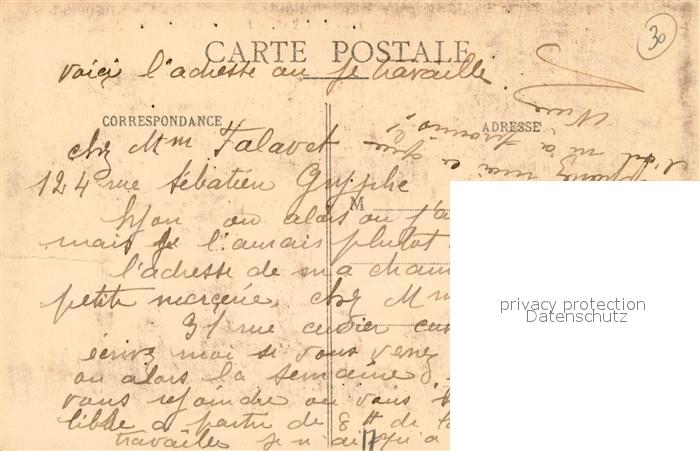 30
CARTE POSTALE
voiçi l'adresse ou je travaille
CORRESPONDANCE
ADRESSE
chez Mm Falavet
124 rue Sébatien Gryphe
M
Lyon ou alors ou j'a
mais je l'aurais plutot
l'adresse de ma cham
petite merçerie, chez Mm
31 rue cuvier
écrivez moi si vous venez
ou alors la semaine
vous rejoindre ou vous
libre a partir de 8 H de
travailler je n'ai qu'a
privacy protection
Datenschutz